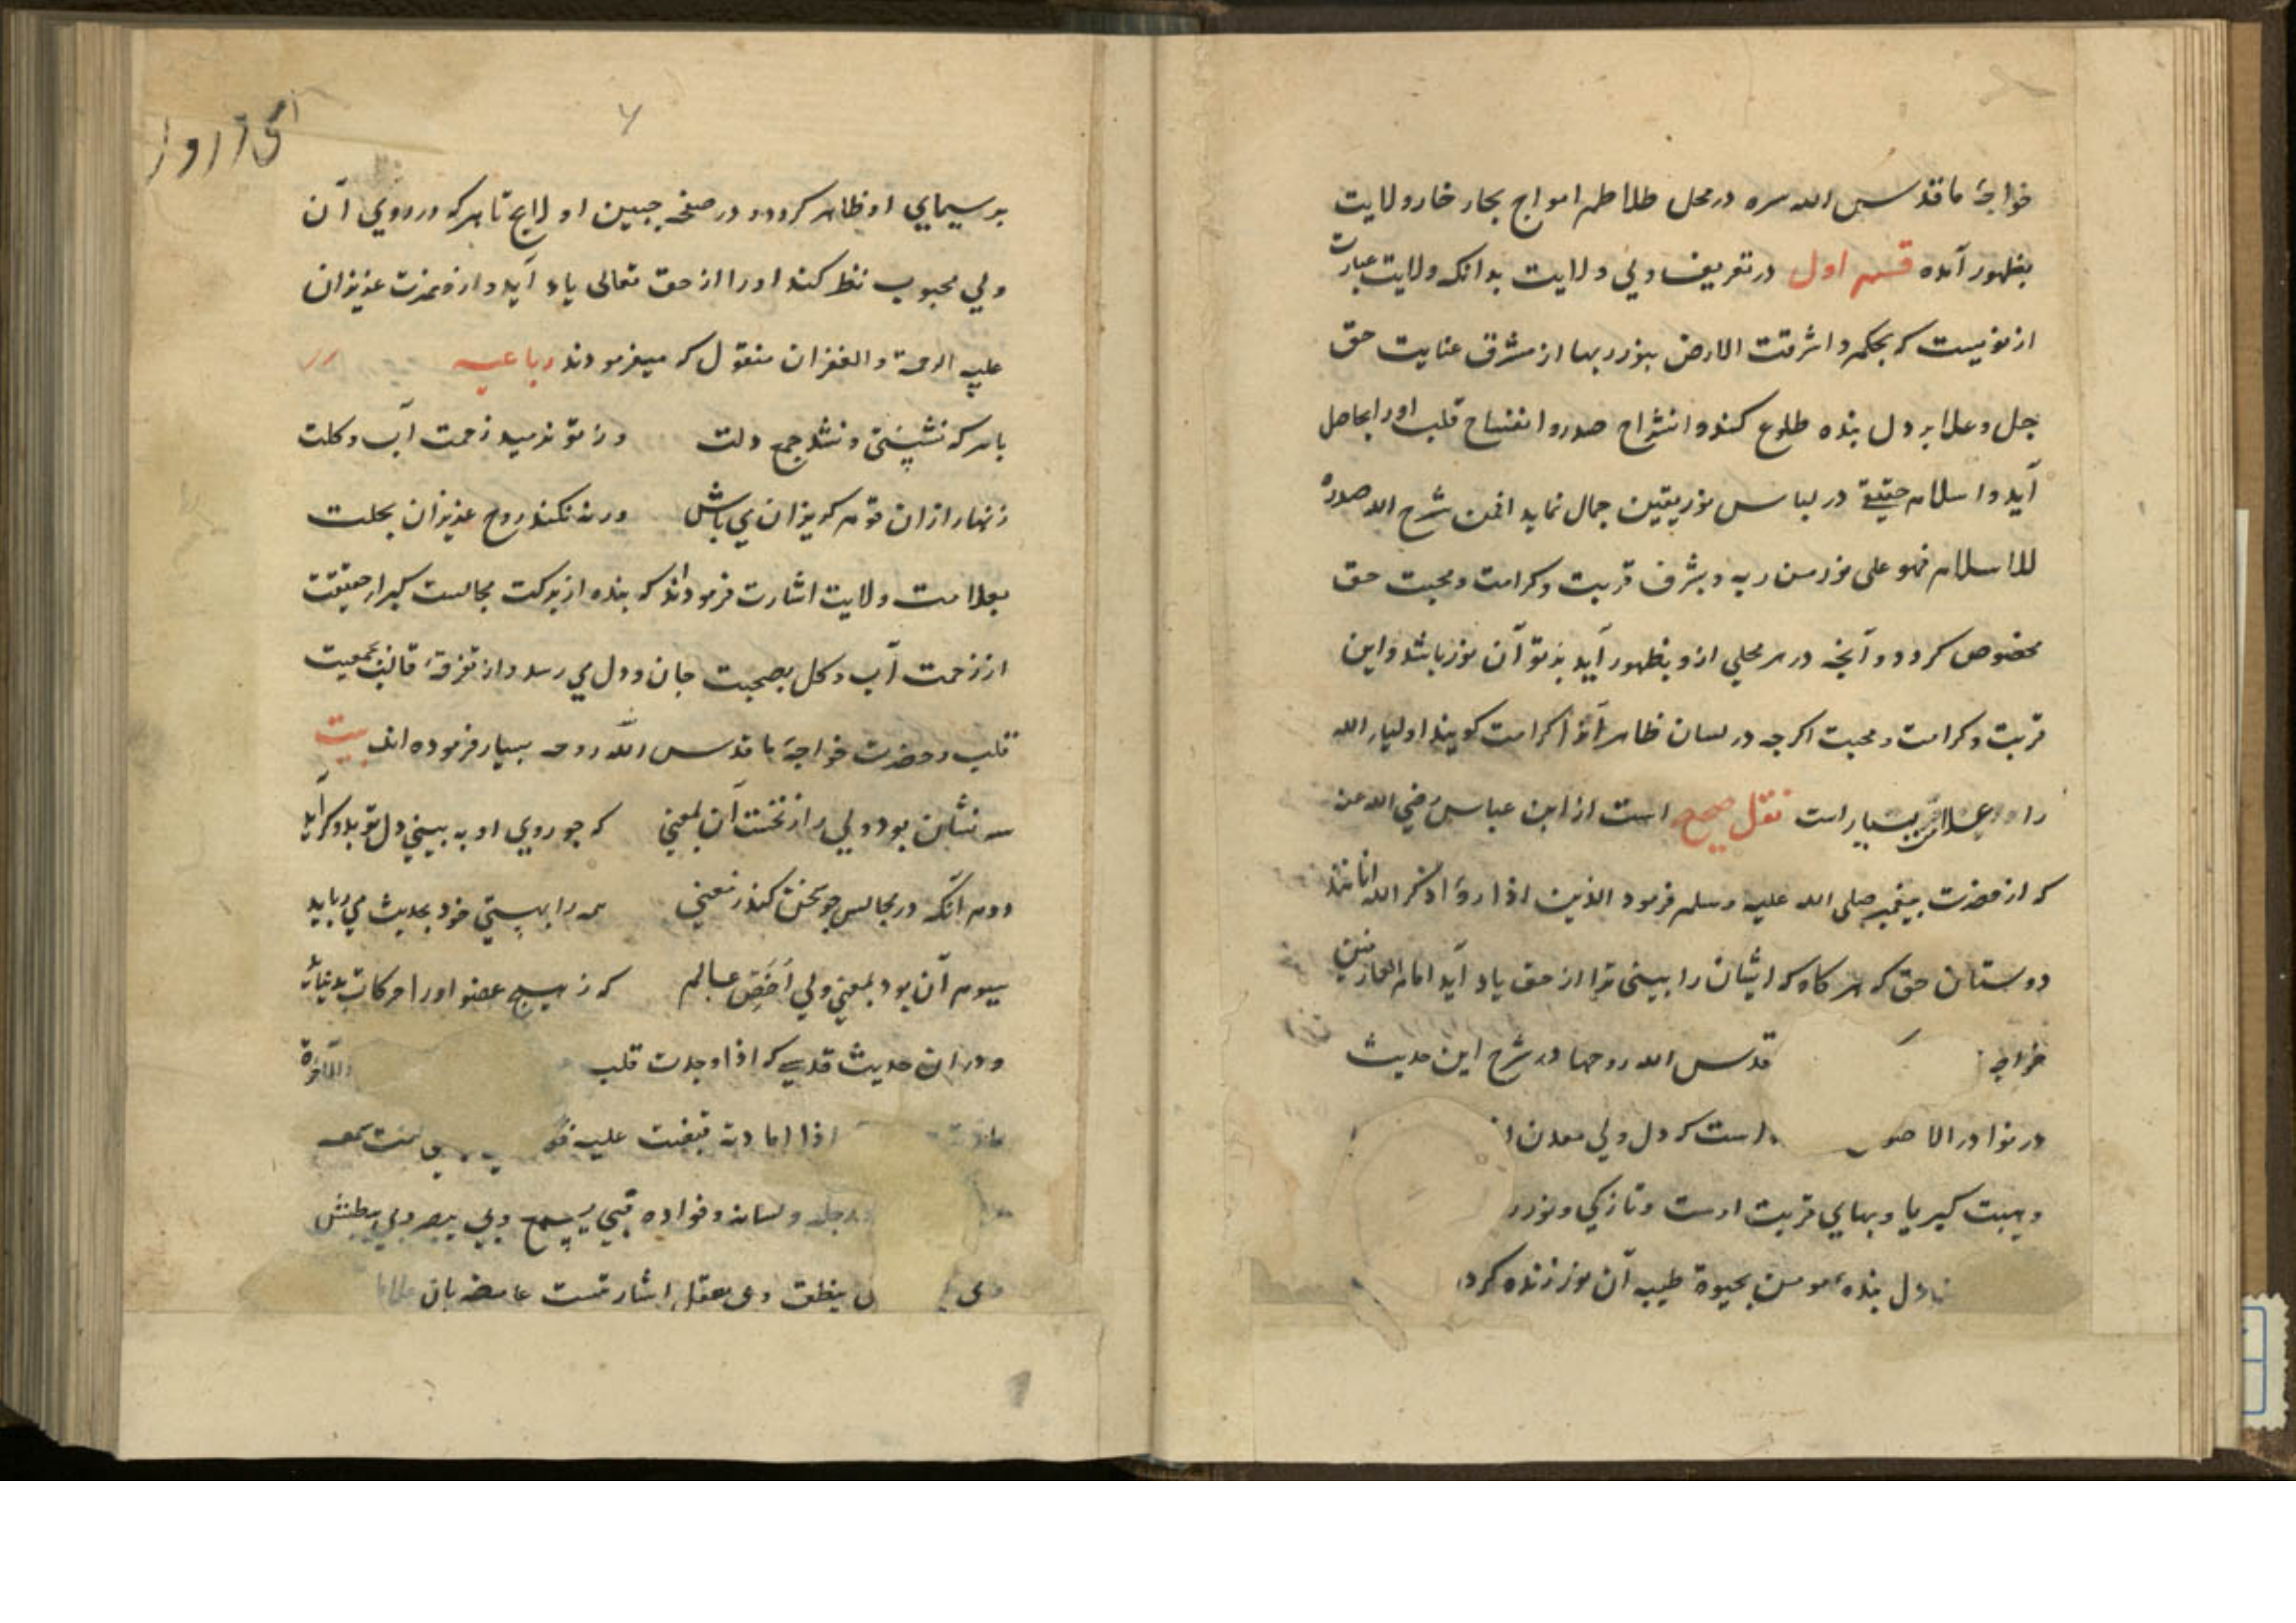 خواجۀ ما قدس الله سره در محل طلاطم امواج بحار خار ولایت
بظهور آمده قسم اول در تعریف ولی و ولایت بدانکه ولایت عبارت
از نوریست که بحکم و اشرقت الارض بنور ربها از مشرق عنایت حق
جل و علا بر دل بنده طلوع کند و انشراح صدر و انفساح قلب او را بحاصل
آید و اسلام حقیقی در لباس نور یقین جمال نماید افمن شرح الله صدره
للاسلام فهو علی نور من ربه و بشرف قربت و کرامت و محبت حق
مخصوص کردد و آنچه در هر محلی ازو بظهور آید پرتو آن نور باشد و این
قربت و کرامت و محبت اکرچه در لسان ظاهر آنرا کرامت کویند اولیاء الله
را علامت بسیار است نقل صحیح است از ابن عباس رضی الله عنه
که از حضرت پیغمبر صلی الله علیه وسلم فرمود الذین اذا رؤا ذکر الله
دوستان حق که هر کاه که ایشان را بینی ترا از حق یاد آید امام العارفین
خواجه قدس الله روحها در شرح این حدیث
در نوادر الاصول است که دل ولی معدن
و هیبت کبریا و بهای قربت اوست و تازکی و نور
دل بنده مومن بحیوة طیبه آن نور زنده کرد
بر سیمای او ظاهر کردد و در صفحه جبین او لایح تا هر که در روی آن
ولی محبوب نظر کند او را از حق تعالی یاد آید و از حضرت عزیزان
علیه الرحمة و الغفران منقول که میفرمودند رباعیه
با هر که نشینی و نشد جمع دلت وز تو نرمید زحمت آب و کلت
زنهار از ان قوم کریزان می باش ورنه نکند روح عزیزان بحلت
بعلامت ولایت اشارت فرمودند که بنده از برکت مجالست کبرا حقیقت
از زحمت آب و کل بصحبت جان و دل می رسد و از تفرقۀ قالب بجمعیت
قلب و حضرت خواجۀ ما قدس الله روحه بسیار فرموده اند بیت
سه نشان بود ولی را ز نخست آن بمعنی که چو روی او به بینی دل تو بدو کراید
دوم آنکه در مجالس چو سخن کند ز معنی همه را ز هستی خود بحدیث می رباید
سیوم آن بود بمعنی ولی اخص عالم که ز هیچ عضو او را حرکات بد نیاید
و در ان حدیث قدسی که اذا وجدت قلب
بی یسمع و بی یبصر و بی یبطش
ینطق و بی یعقل اشارتست